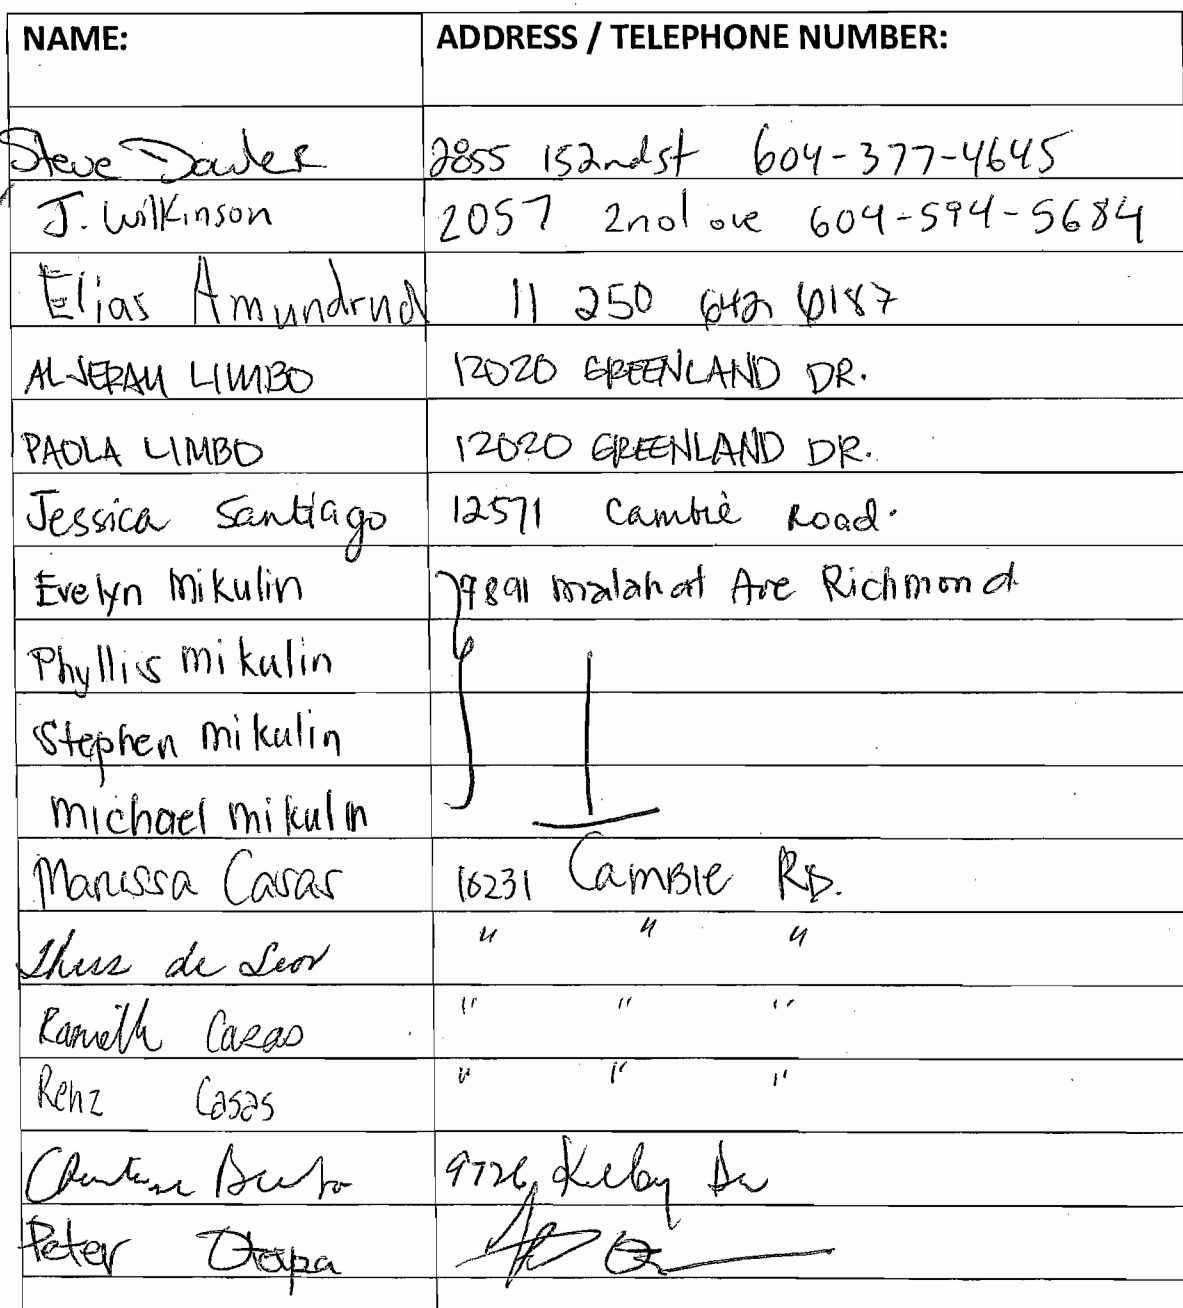 NAME: ADDRESS / TELEPHONE NUMBER:
Steve Dowler 2855 152nd st 604-377-4645
J. Wilkinson 2057 2nd ave 604-594-5684
Elias Amundrud 11 250 642 6187
ALJERAM LIMBO 12020 GREENLAND DR.
PAOLA LIMBO 12020 GREENLAND DR.
Jessica Santiago 12571 Cambie Road.
Evelyn Mikulin 9891 Malahat Ave Richmond
Phyllis Mikulin
Stephen Mikulin
Michael Mikulin
Marissa Casas 16231 Cambie RD.
de Leon " " "
Casas " " "
Renz Casas " " "
9726 Dr
Peter